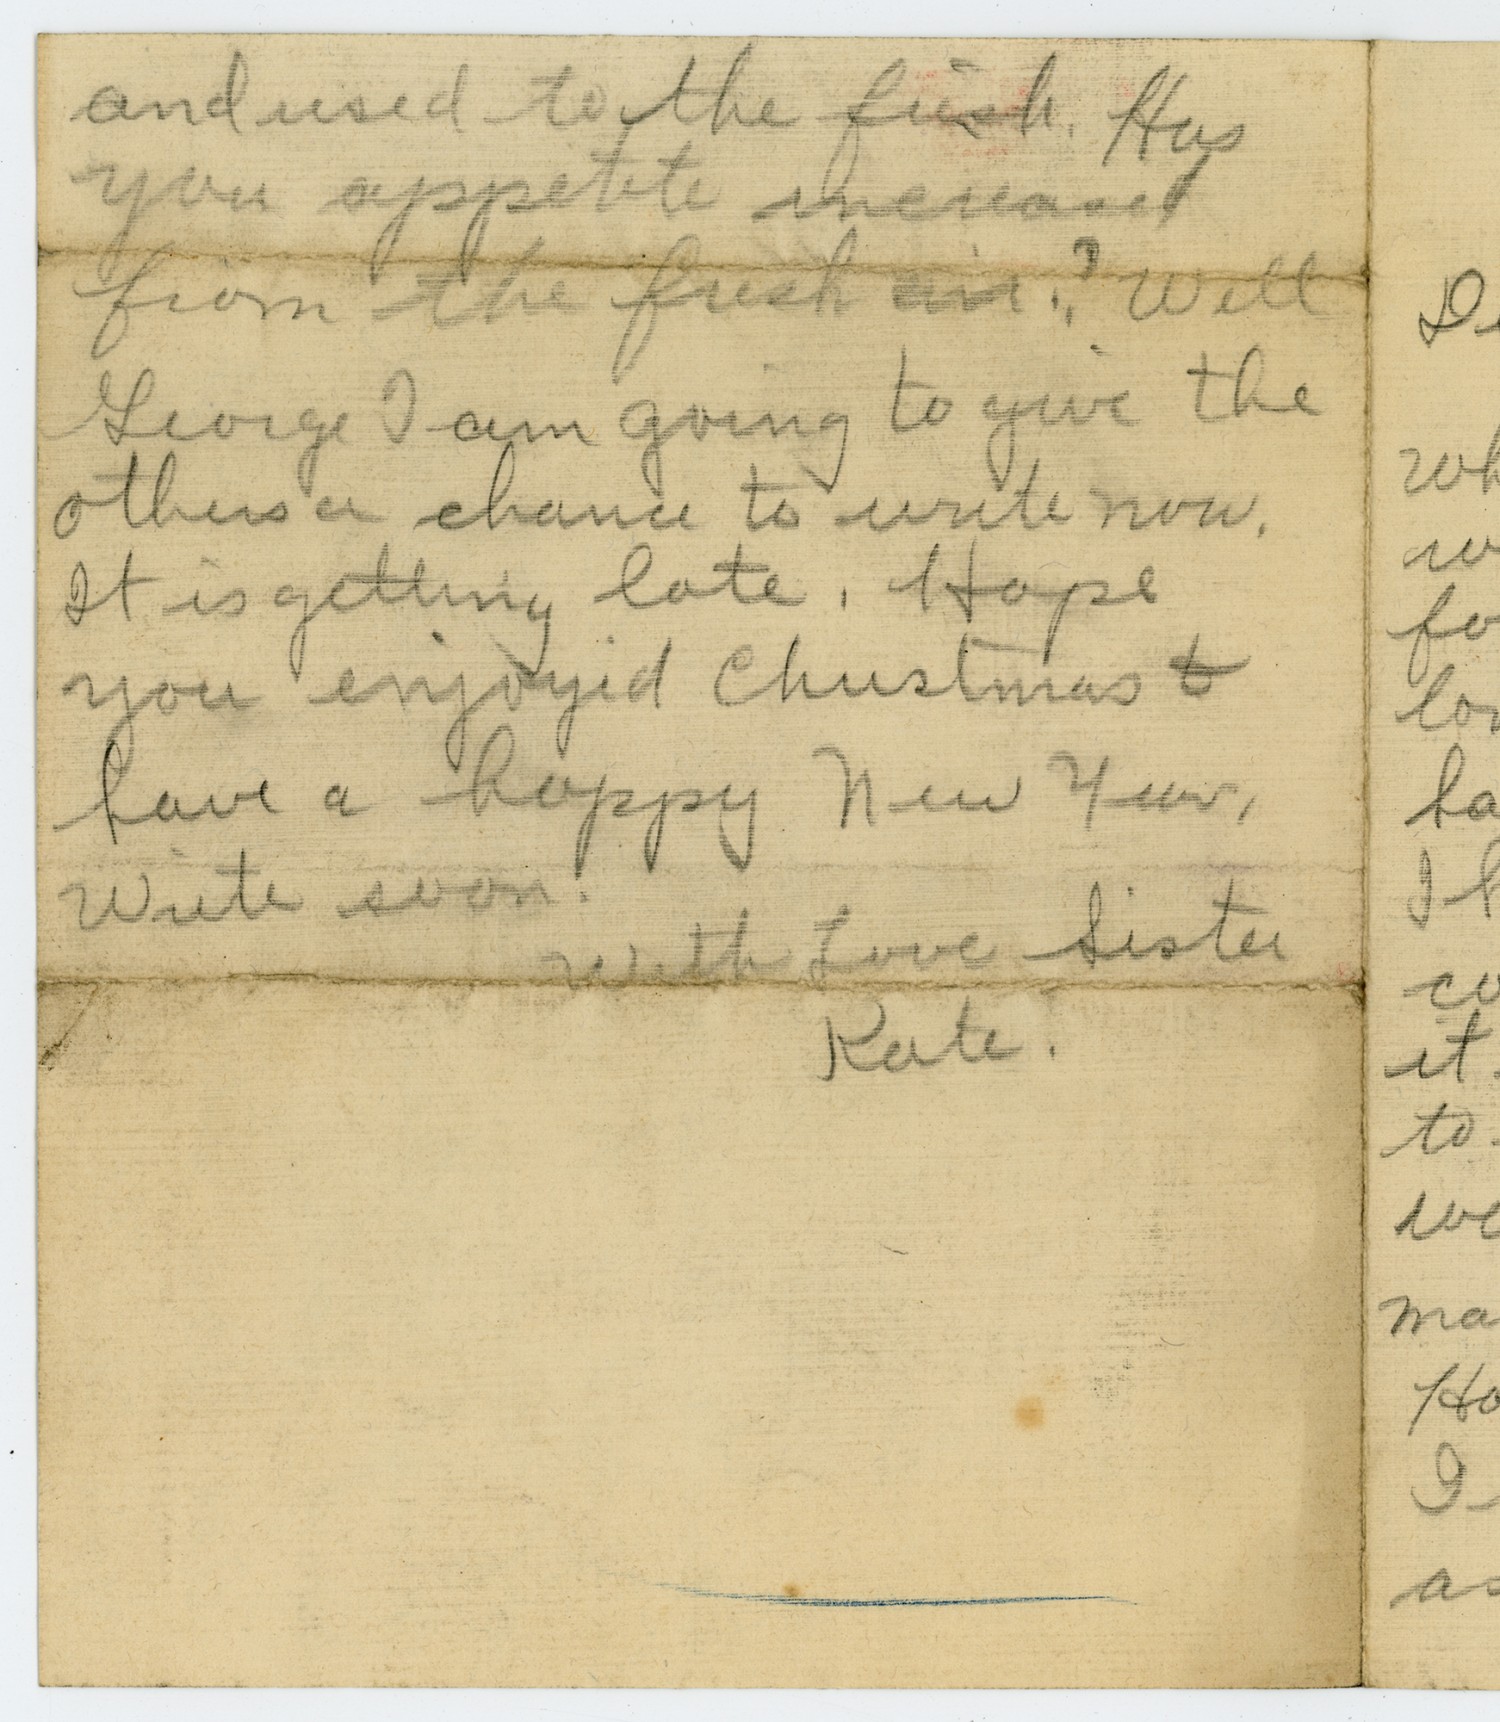 and used to the fresh. Has
you appetite increased
from the fresh air.? Well
George I am going to give the
others a chance to write now.
It is getting late. Hope
you enjoyed Christmas &
have a happy New Year,
Write soon.
With Love Sister
Kate.